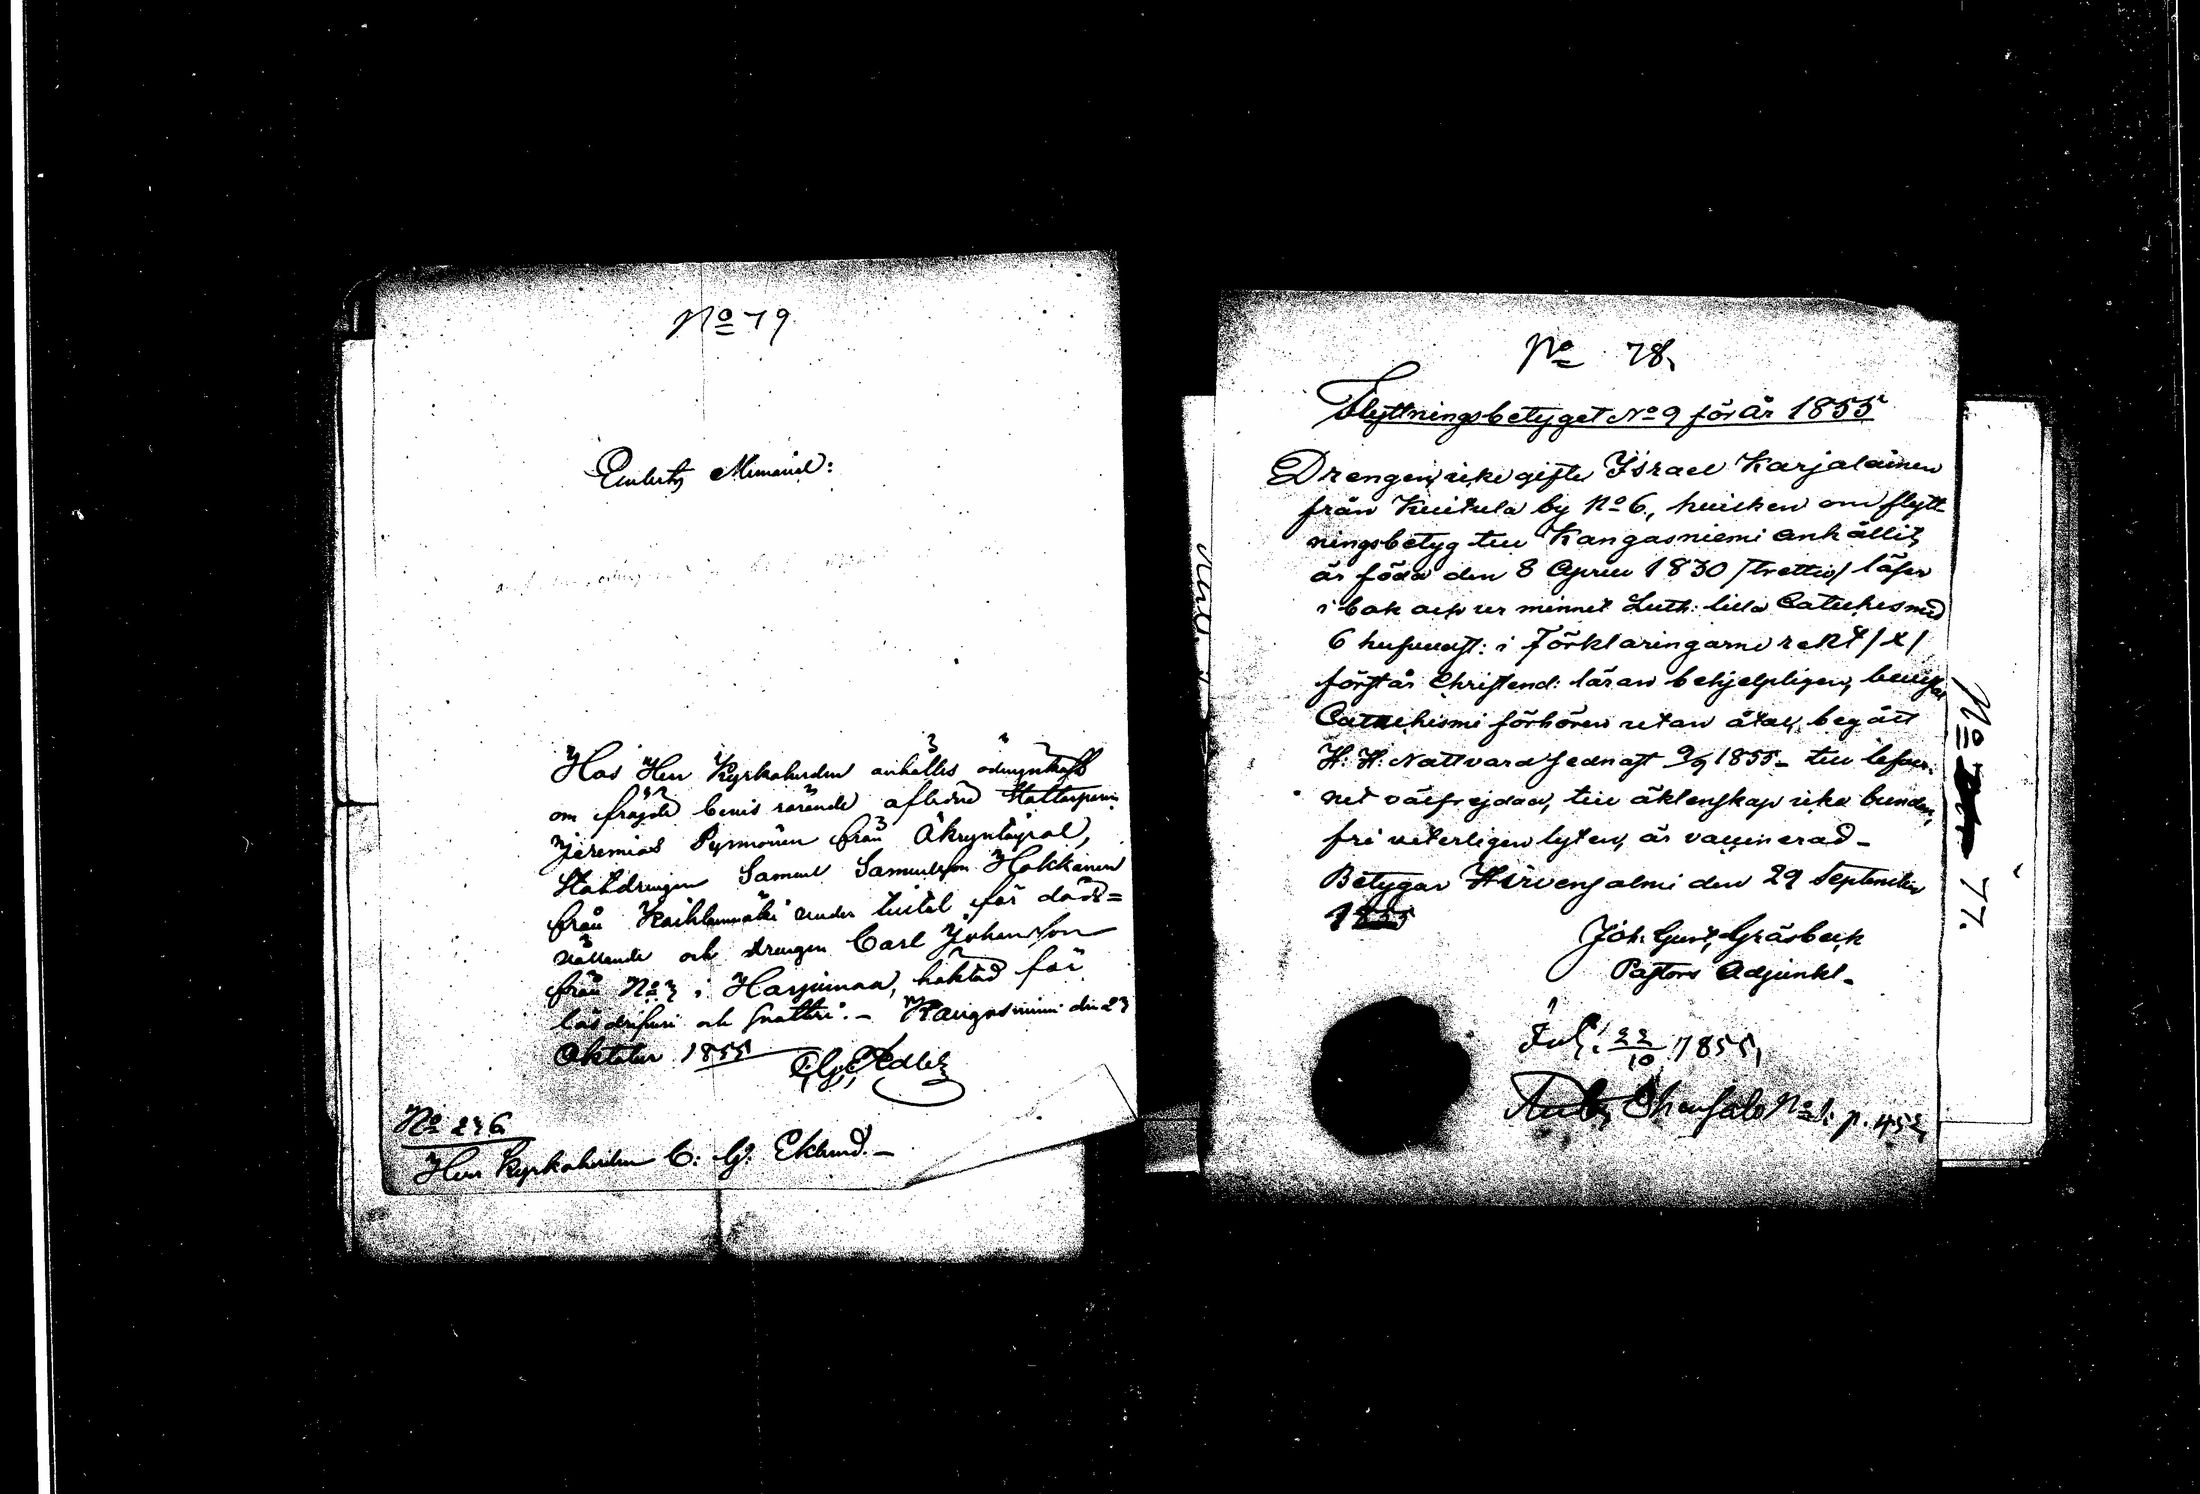 No 79
Embets Memorial:
Hos Herr Kyrkoherden anhålles ödmjukast
om frejde bevis rörande aflidne
Jeremias Pynnönen från Äkryntaipal,
Statdrengen Samuel Samuelsson Hokkanen
från under tilltal för dods=
vållande och drengen Carl Johansson
från No 3 i Harjumaa, häktad för
lösdrifveri och snatteri. – Kangasniemi den 23
Oktober 1855
Adler
No 236
Herr Kyrkoherden C: G: Eklund. –
No 78,
Flyttningsbetyget No 9 för år 1855
Drengen, icke gifte Israel Karjalainen
från Kuitula by No 6, hvilken om flytt-
ningsbetyg till Kangasniemi anhållit,
är född den 8 April 1830 /trettio/ läser
i bok och ur minnet Luth: lilla Cateches med
6 hufvudst: i Förklaringarne rätt /x/
förstår Christend: läran behjelpligen, bevistat
Catechismi förhören utan åtal, begått
H: H: Nattvard sednast 9/9 1855 – till lefver-
net välfrejdad, till äktenskap icke bunden,
fri veterligen lyten, är vaccinerad –
Betygar Hirvensalmi den 29 September
1855
Joh. Gust. Gråsbeck
Pastors Adjunkt –
22/10 1855,
No 1. p. 452
No 77.